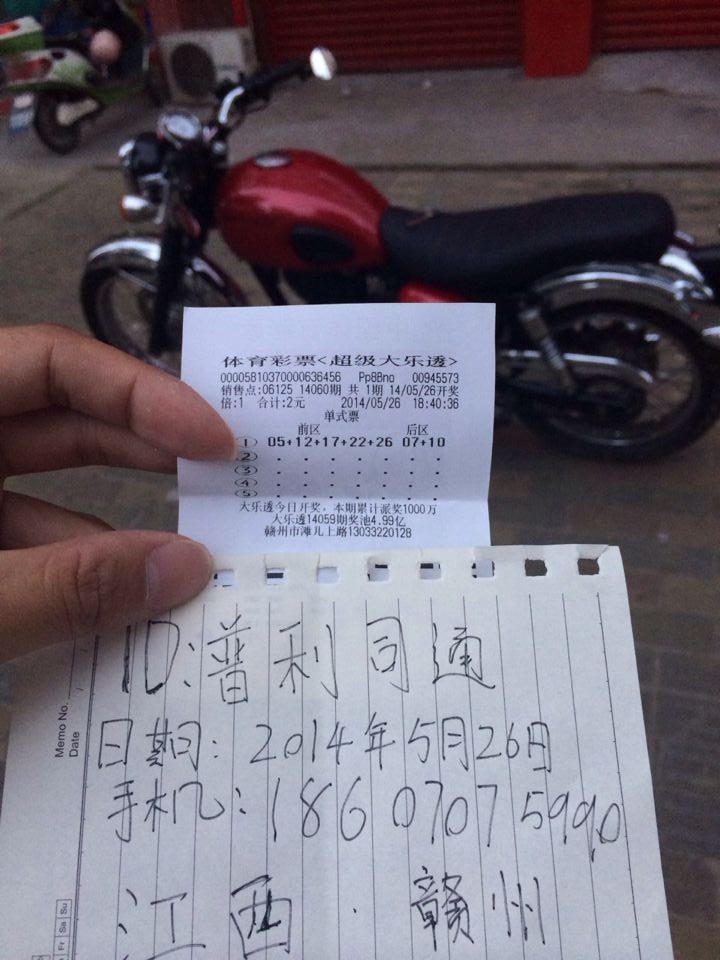 体育彩票<超级大乐透>
00005810370000636456 Pp8Bno 00945573
销售点:06125 14060期 共 1期 14/05/26开奖
倍:1 合计:2元 2014/05/26 18:40:36
单式票
前区 后区
① 05+12+17+22+26 07+10
② . . . . . . .
③ . . . . . . .
④ . . . . . . .
⑤ . . . . . . .
大乐透今日开奖，本期累计派奖1000万
大乐透14059期奖池4.99亿
赣州市滩儿上路13033220128
Memo No.
Date
ID:普利司通
日期:2014年5月26日
手机:18607075990
江西·赣州
Fr Sa Su